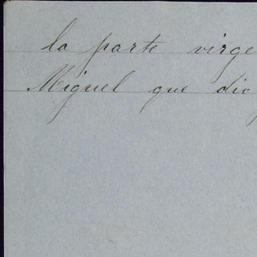 la parte virge
Miguel que dio